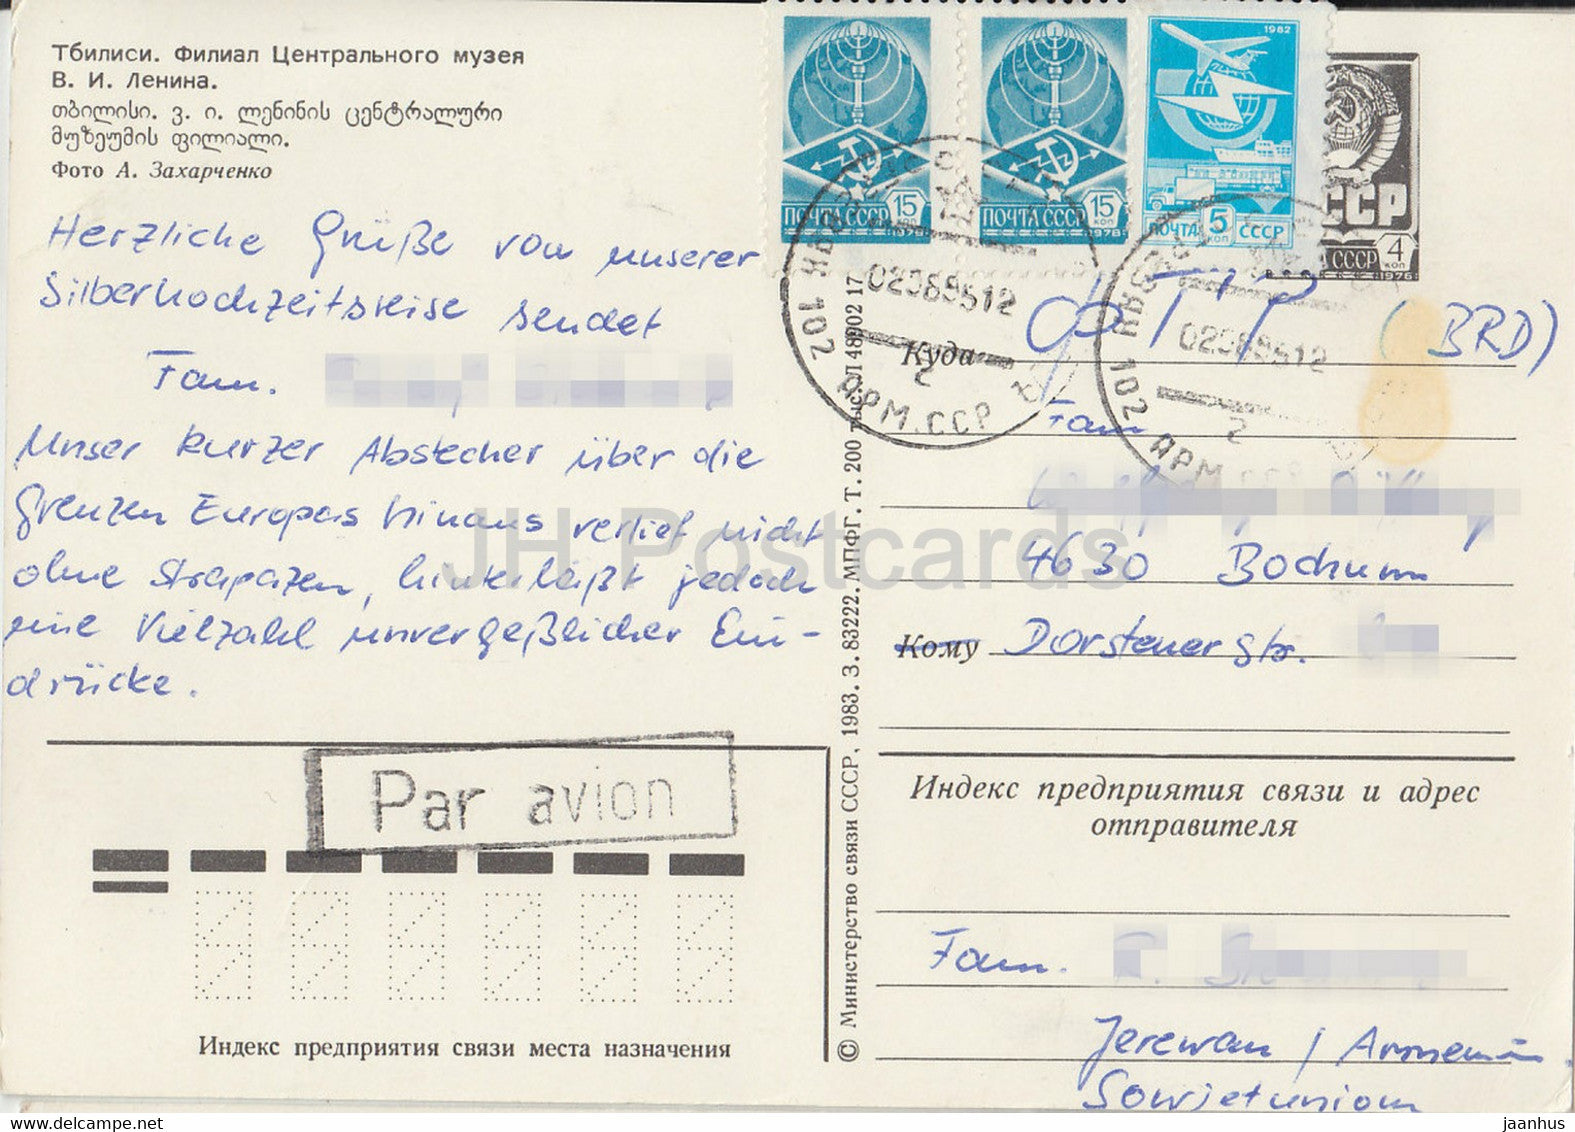 Тбилиси. Филиал Центрального музея
В. И. Ленина.
თბილისი. ვ. ი. ლენინის ცენტრალური
მუზეუმის ფილიალი.
Фото А. Захарченко
Herzliche Grüße von unserer
Silberhochzeitsreise sendet
Fam.
Unser kurzer Abstecher über die
Grenzen Europas hinaus verlief nicht
ohne Strapazen, hinterläßt jedoch
eine Vielzahl unvergeßlicher Ein-
drücke.
Par avion
Индекс предприятия связи места назначения
© Министерство связи СССР. 1983. З. 83222. МПФГ. Т. 200 тыс.
ПОЧТА СССР 15 коп
ПОЧТА СССР 15 коп 1978
1982
ПОЧТА 5 коп СССР
СССР 4 коп
1976
102 АРМ.ССР
102 АРМ.ССР
Куда
(BRD)
Fam
4630 Bochum
Кому Dorstener Str.
Индекс предприятия связи и адрес
отправителя
Fam.
Jerewan / Armenien
Sowjetunion
JH Postcards
www.delcampe.net
jaanhus